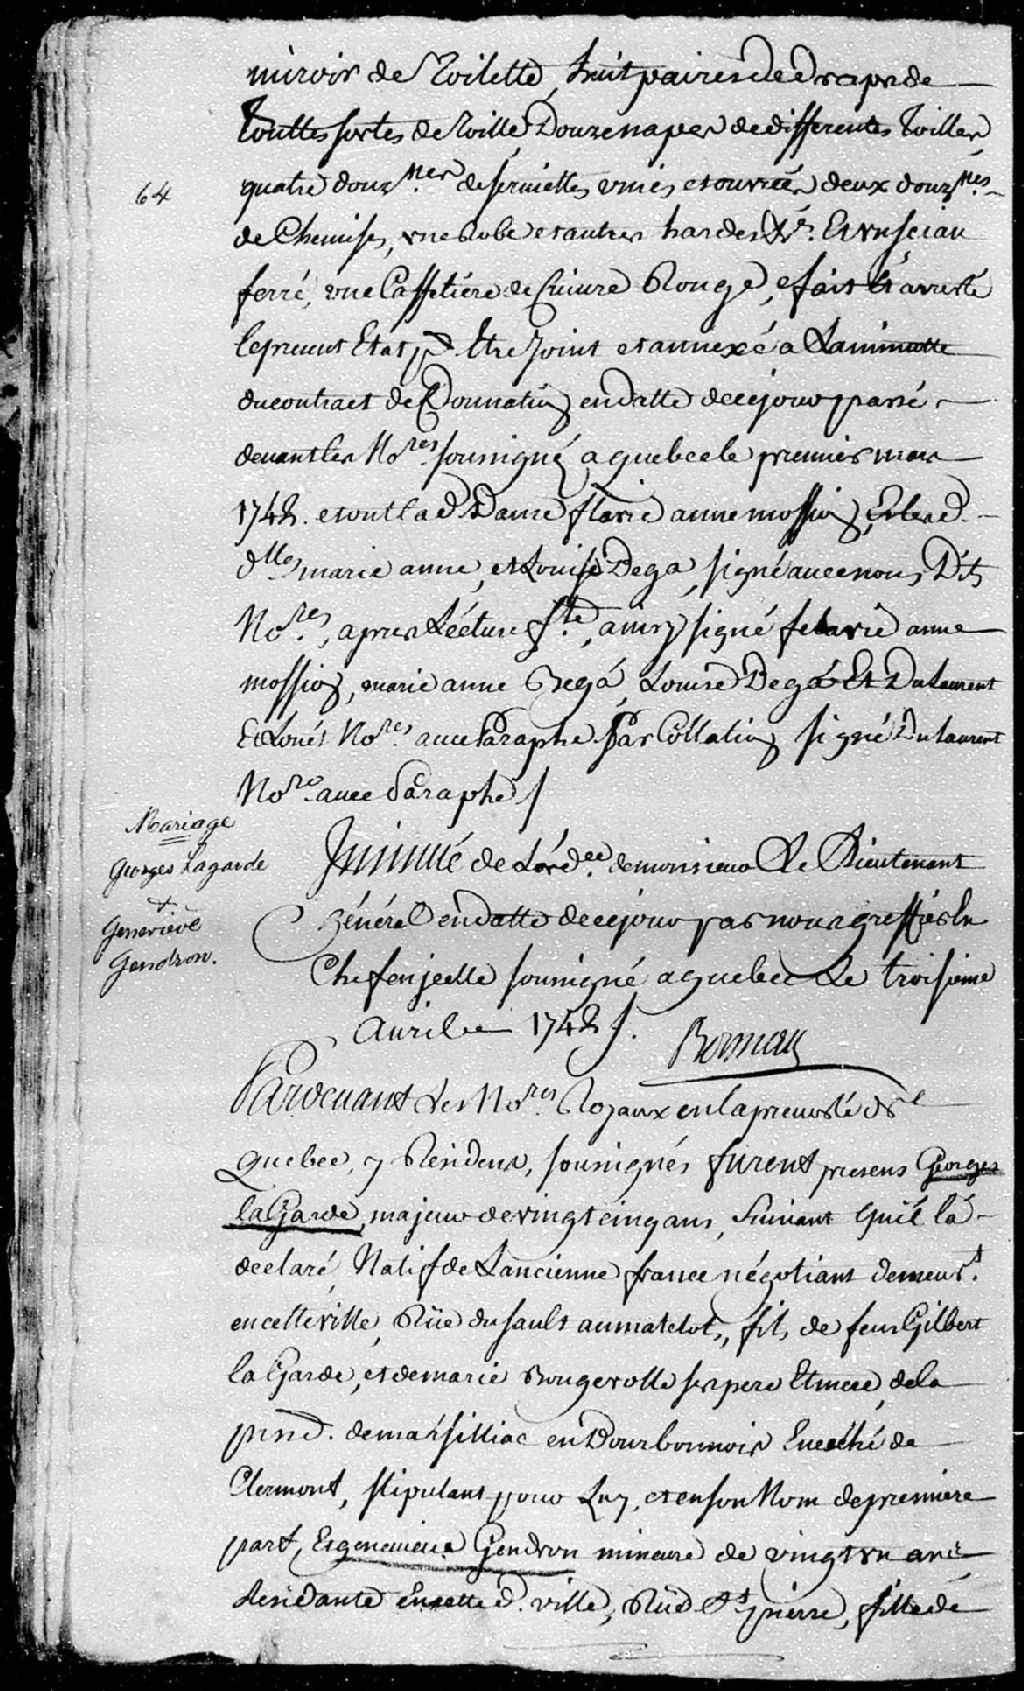 miroir de Toilette, huit paires de draps de
Touttes sortes de Toille, Douze napes de differentes Toilles,
64
quatre douz.nes de serviettes unies et ouvrées deux douz.nes
de Chemises, une Robe et autres hardes &c. Et un sceau
ferré, une Caffetiere de Cuivre Rouge, fait et arresté
le present Etat p.r Etre Joint et annexé a La minutte
du contract de Donnation en datte de ce jour passé
devant les No.res soussigné a quebec le premier mars
1748. et ont lad. Dame flavie anne mossion, Et lesd.
d.lles marie anne, et Louise Dega, signé avec nous Dits
No.res, apres Lecture f.te, ainsy signé flavie anne
mossion, marie anne Dega, Louise Dega Et Dulaurent
Et Louet No.res avec Paraphe. Par Collation signé Dulaurent
No.re avec Paraphe /
Mariage
Georges Lagarde
+
Geneviève
Gendron.
Insinué de L'ord.ce de monsieur Le Lieutenant
Général en datte de ce jour par nous greffier En
Chef en jcelle soussigné a quebec Le troisieme
avril 1748 /.
Boisseau
Pardevant Les No.res Royaux en la prevosté de
Quebec, y Residens, soussignés furent presens Georges
la Garde, majeur de vingt cinq ans, Suivant qu'il la
declaré, Natif de Lancienne france négotiant demeur.t
en cette ville, Rüe du Sault au matelot, fils de feu Gilbert
la Garde, et de marie Rougerolle ses pere Et mere, de la
de marsilliac en Bourbonnois Evêché de
Clermont, stipulant pour Luy, et en son Nom de premiere
part, Et genevieve Gendron mineure de vingt un ans
Residante en cette d. ville, Rüe S.t pierre, fille de